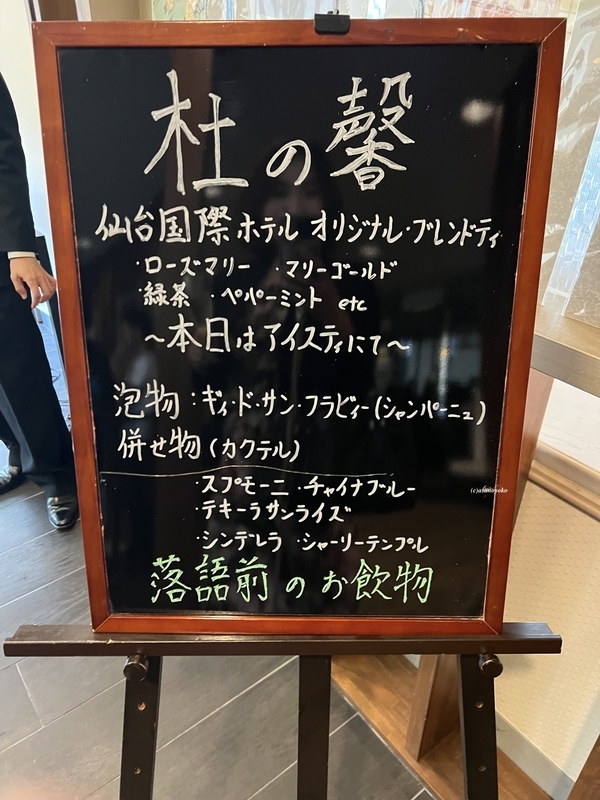 杜の馨
仙台国際ホテル オリジナル・ブレンドティ
・ローズマリー ・マリーゴールド
・緑茶 ・ペパーミント etc
~本日はアイスティにて~
泡物:ギィ・ド・サン・フラビィー(シャンパーニュ)
併せ物(カクテル)
・スプモーニ ・チャイナブルー
・テキーラサンライズ
・シンデレラ ・シャーリーテンプル
落語前のお飲物